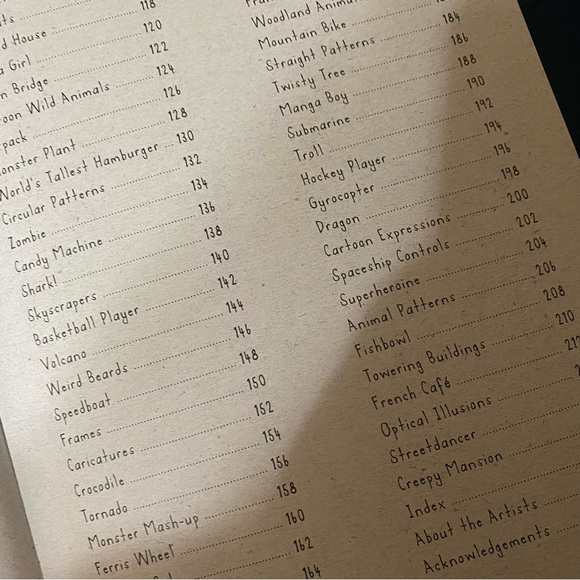 ts
d House 118
a Girl 120
n Bridge 122
oon Wild Animals 124
pack 126
onster Plant 128
World's Tallest Hamburger 130
Circular Patterns 132
Zombie 134
Candy Machine 136
Shark! 138
Skyscrapers 140
Basketball Player 142
Volcano 144
Weird Beards 146
Speedboat 148
Frames 150
Caricatures 152
Crocodile 154
Tornado 156
Monster Mash-up 158
Ferris Wheel 160
162
164
Woodland Anima
Mountain Bike
Straight Patterns 184
Twisty Tree 186
Manga Boy 188
Submarine 190
Troll 192
Hockey Player 194
Gyrocopter 196
Dragon 198
Cartoon Expressions 200
Spaceship Controls 202
Superheroine 204
Animal Patterns 206
Fishbowl 208
Towering Buildings 210
French Café 21
Optical Illusions
Streetdancer
Creepy Mansion
Index
About the Artists
Acknowledgements